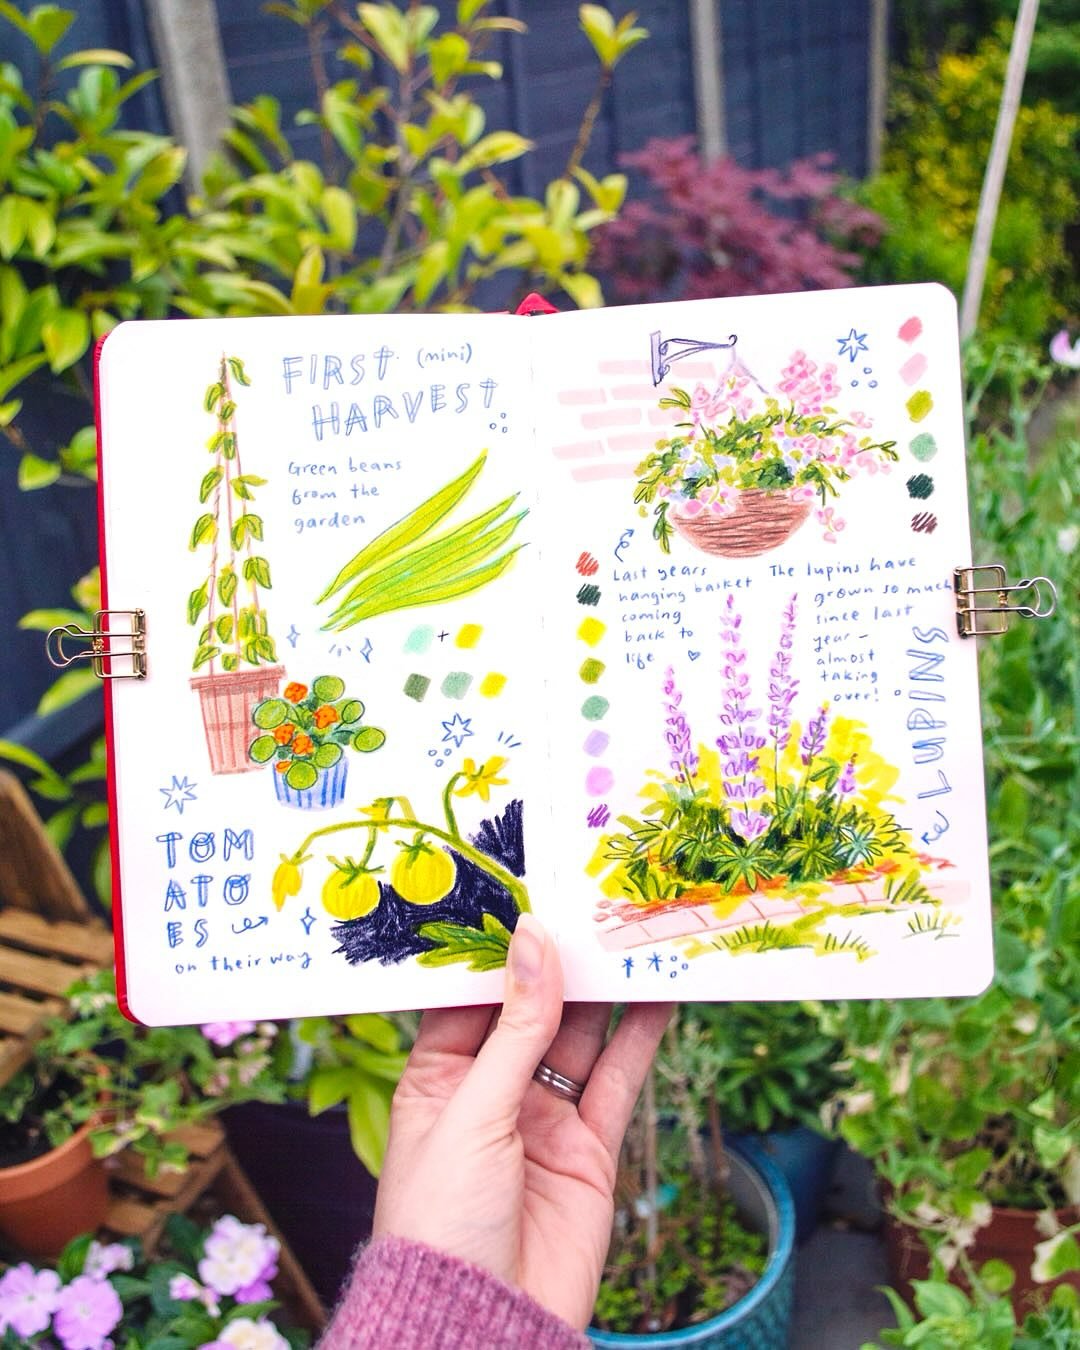 FIRST (mini)
HARVEST
Green beans
from the
garden
TOM
ATO
ES
on their way
Last years
hanging basket
coming
back to
life
The lupins have
grown so much
since last
year –
almost
taking
over!
LUPINS